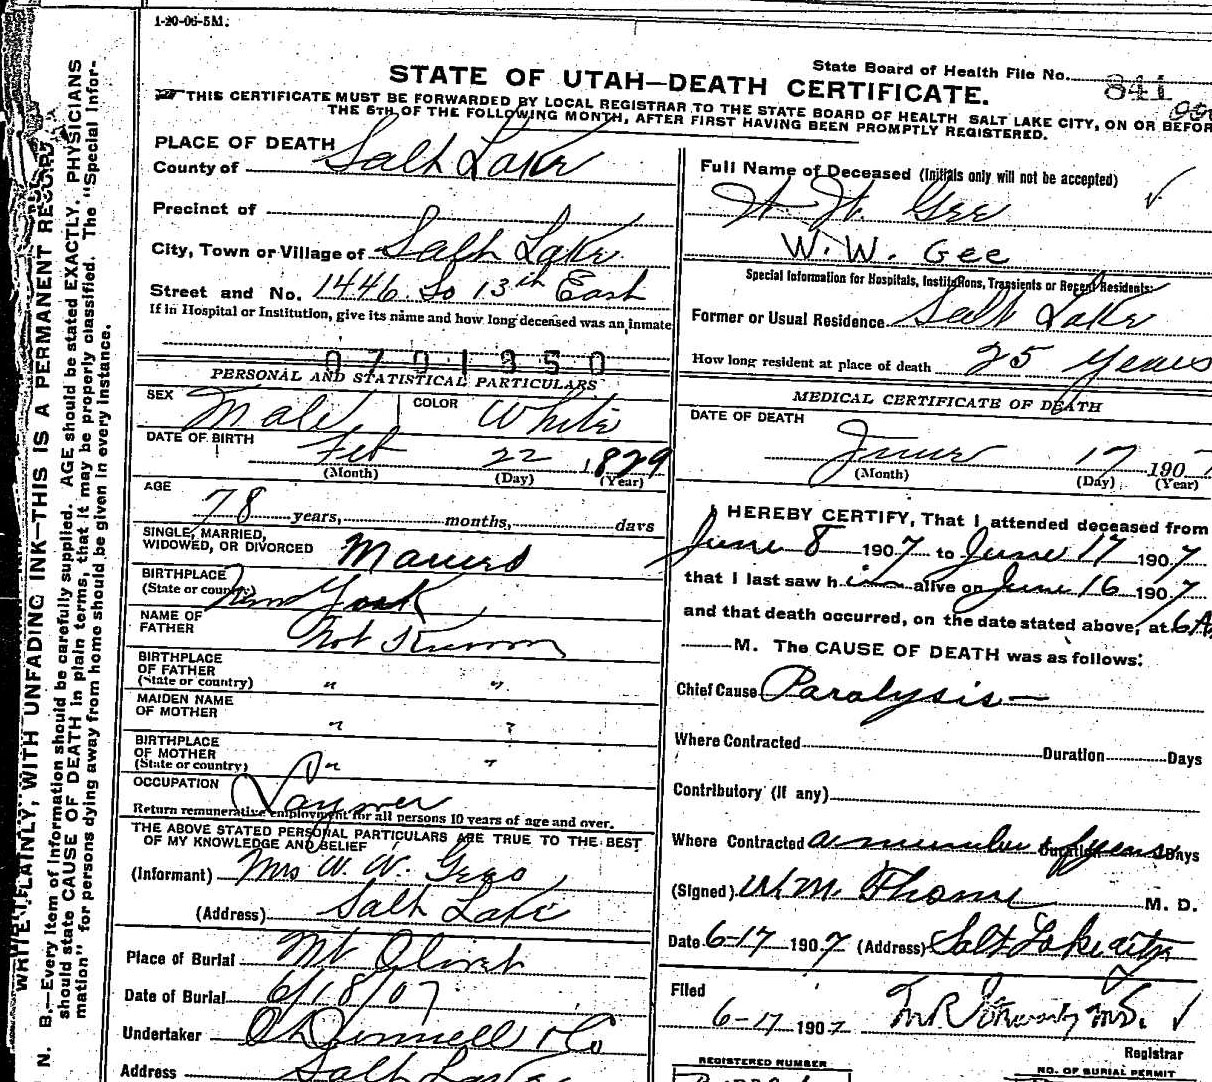 1-20-06-5M.
State Board of Health File No. 841
STATE OF UTAH—DEATH CERTIFICATE.
THIS CERTIFICATE MUST BE FORWARDED BY LOCAL REGISTRAR TO THE STATE BOARD OF HEALTH SALT LAKE CITY, ON OR BEFOR
THE 5TH OF THE FOLLOWING MONTH, AFTER FIRST HAVING BEEN PROMPTLY REGISTERED.
PLACE OF DEATH
County of Salt Lake
Precinct of
City, Town or Village of Salt Lake
Street and No. 1446 So 13th East
If in Hospital or Institution, give its name and how long deceased was an inmate
0701350
PERSONAL AND STATISTICAL PARTICULARS
SEX Male COLOR White
DATE OF BIRTH Feb 22 1829
(Month) (Day) (Year)
AGE
78 years, months, days
SINGLE, MARRIED,
WIDOWED, OR DIVORCED Married
BIRTHPLACE
(State or country) New York
NAME OF
FATHER Not Known
BIRTHPLACE
OF FATHER
(State or country) " "
MAIDEN NAME
OF MOTHER " "
BIRTHPLACE
OF MOTHER
(State or country) " "
OCCUPATION Lawyer
Return remunerative employment for all persons 10 years of age and over.
THE ABOVE STATED PERSONAL PARTICULARS ARE TRUE TO THE BEST
OF MY KNOWLEDGE AND BELIEF
(Informant) Mrs W. W. Gee
(Address) Salt Lake
Place of Burial Mt Olivet
Date of Burial 6/18/07
Undertaker O'Donnell & Co
Address Salt Lake
Full Name of Deceased (Initials only will not be accepted)
W. W. Gee
W. W. Gee
Special Information for Hospitals, Institutions, Transients or Recent Residents:
Former or Usual Residence Salt Lake
How long resident at place of death 25 years
MEDICAL CERTIFICATE OF DEATH
DATE OF DEATH
June 17 1907
(Month) (Day) (Year)
I HEREBY CERTIFY, That I attended deceased from
June 8 1907 to June 17 1907
that I last saw him alive on June 16 1907
and that death occurred, on the date stated above, at 6 A
M. The CAUSE OF DEATH was as follows:
Chief Cause Paralysis
Where Contracted Duration Days
Contributory (If any)
Where Contracted a number of years Duration Days
(Signed) M. D.
Date 6-17 1907 (Address) Salt Lake City
Filed
6-17 1907 M.D.
Registrar
REGISTERED NUMBER
NO. OF BURIAL PERMIT
WRITE PLAINLY, WITH UNFADING INK—THIS IS A PERMANENT RECORD
N. B.—Every item of information should be carefully supplied. AGE should be stated EXACTLY. PHYSICIANS
should state CAUSE OF DEATH in plain terms, that it may be properly classified. The "Special Infor-
mation" for persons dying away from home should be given in every instance.